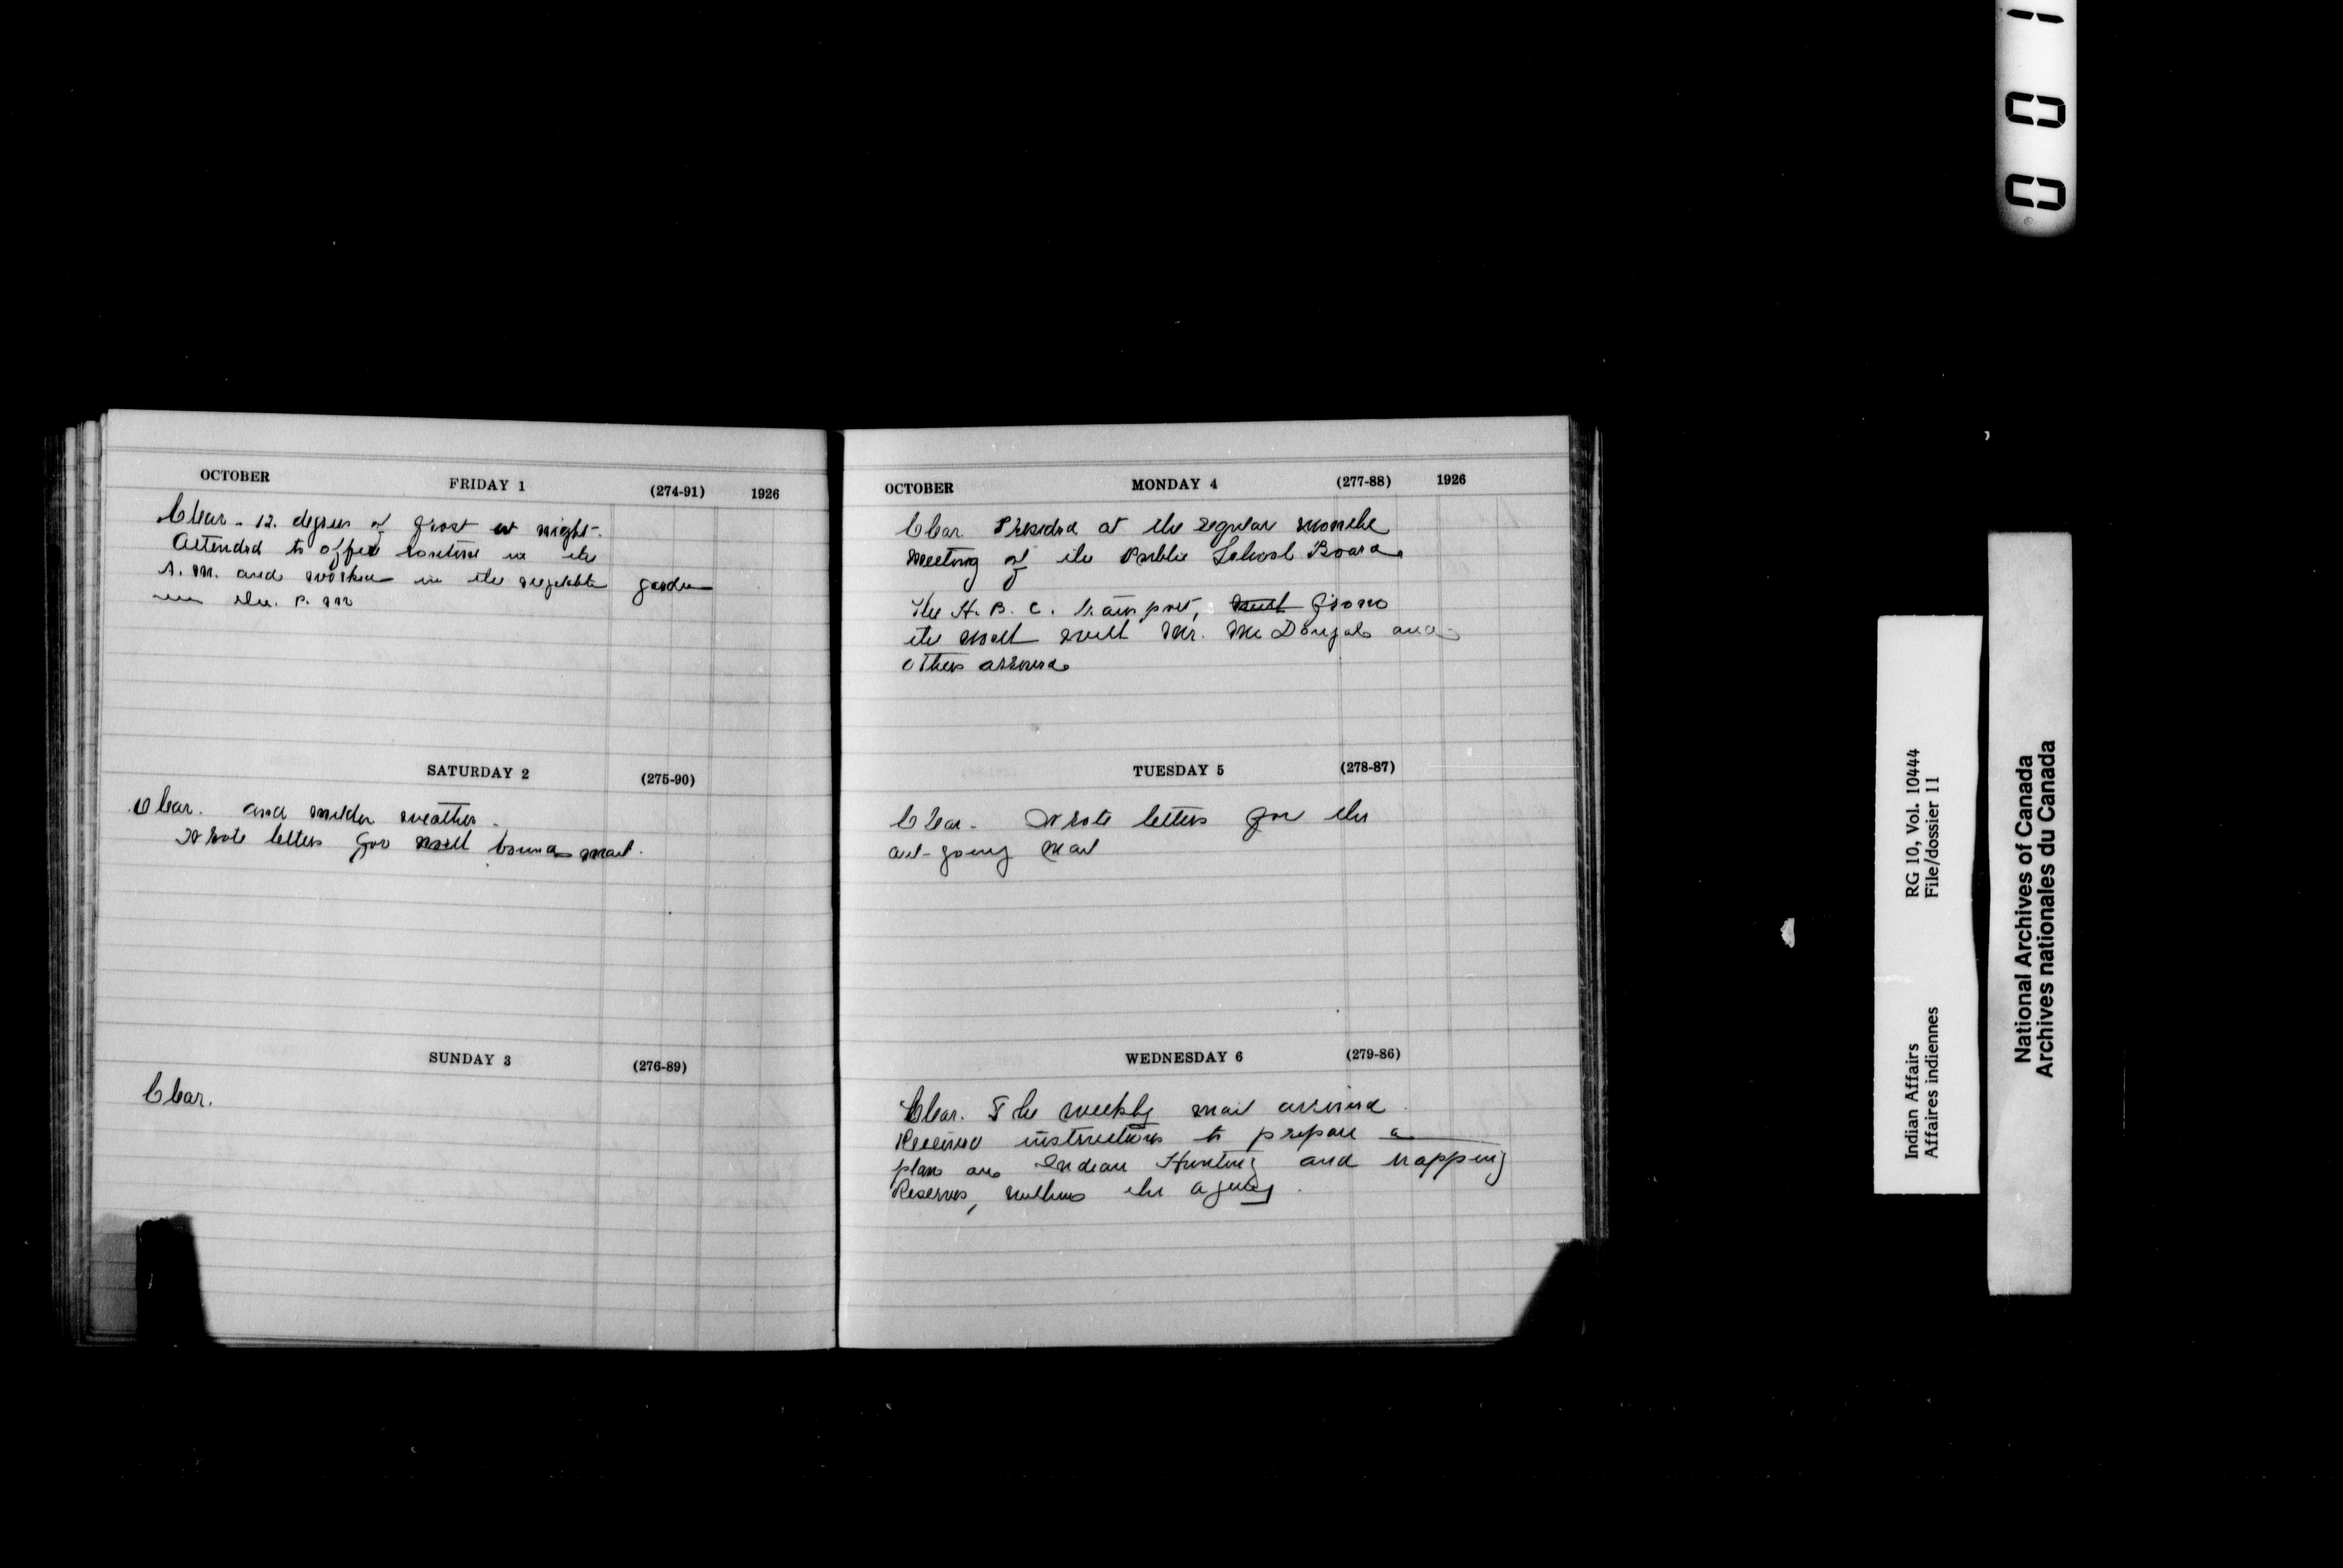 OCTOBER FRIDAY 1 (274-91) 1926
Clear - 12. degrees of frost at night.
Attended to office routine in the
A. M. and worked in the vegetable garden
in the. P. M
SATURDAY 2 (275-90)
Clear. and milder weather.
Wrote letters for bound mail.
SUNDAY 3 (276-89)
Clear.
OCTOBER MONDAY 4 (277-88) 1926
Clear Presided at the regular
Meeting of the Public School Board
The H. B. C. transport, from
the with Mr. McDougal and
others arrived
TUESDAY 5 (278-87)
Clear - Wrote letters for the
out-going Mail
WEDNESDAY 6 (279-86)
Clear. The weekly mail arrived.
Received instructions to prepare a
plan Indian Hunting and trapping
Reserves, within the agency.
001
Indian Affairs RG 10, Vol. 10444
Affaires indiennes File/dossier 11
National Archives of Canada
Archives nationales du Canada